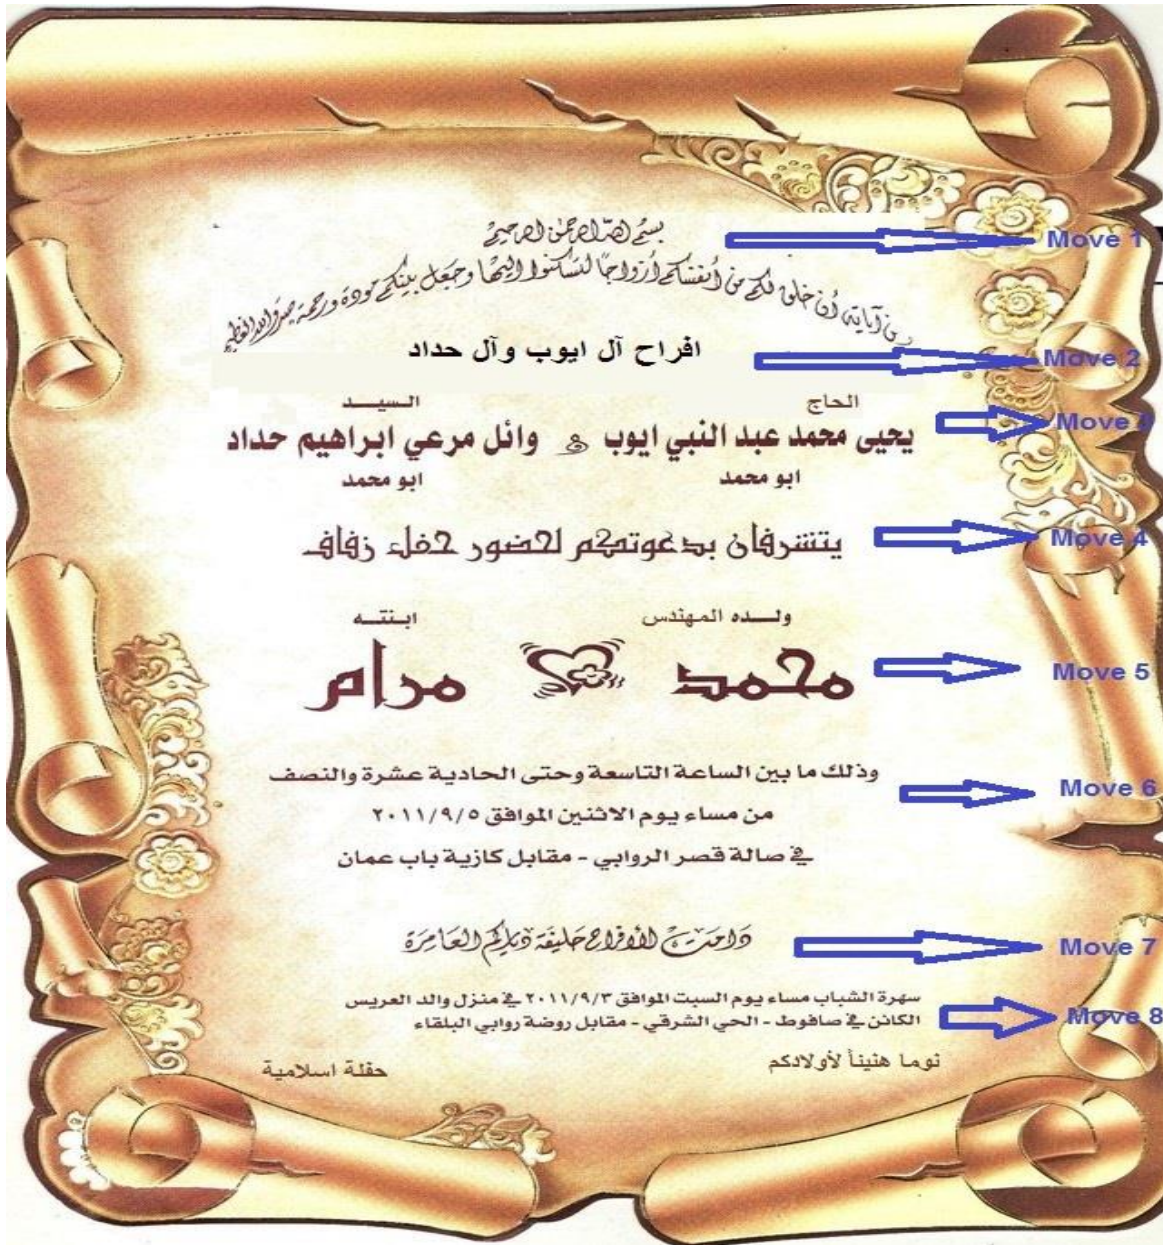 بسم الله الرحمن الرحيم
Move 1
ومن آياته أن خلق لكم من أنفسكم أزواجاً لتسكنوا إليها وجعل بينكم مودة ورحمة صدق الله العظيم
افراح آل ايوب وآل حداد
Move 2
الحاج السيـــد
يحيى محمد عبد النبي ايوب & وائل مرعي ابراهيم حداد
Move 3
ابو محمد ابو محمد
يتشرفان بدعوتكم لحضور حفل زفاف
Move 4
ولـــده المهندس ابـنتـــه
محمد مرام
Move 5
وذلك ما بين الساعة التاسعة وحتى الحادية عشرة والنصف
Move 6
من مساء يوم الاثنين الموافق ٢٠١١/٩/٥
في صالة قصر الروابي - مقابل كازية باب عمان
دامت الأفراح حليفة دياركم العامرة
Move 7
سهرة الشباب مساء يوم السبت الموافق ٢٠١١/٩/٣ في منزل والد العريس
الكائن في صافوط - الحي الشرقي - مقابل روضة روابي البلقاء
Move 8
نوما هنيئاً لأولادكم حفلة اسلامية